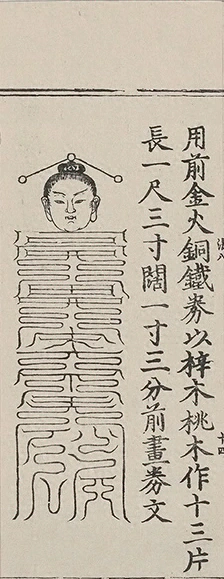 用前金火銅鐵券以梓木桃木作十三片
長一尺三寸闊一寸三分前畫券文
十四